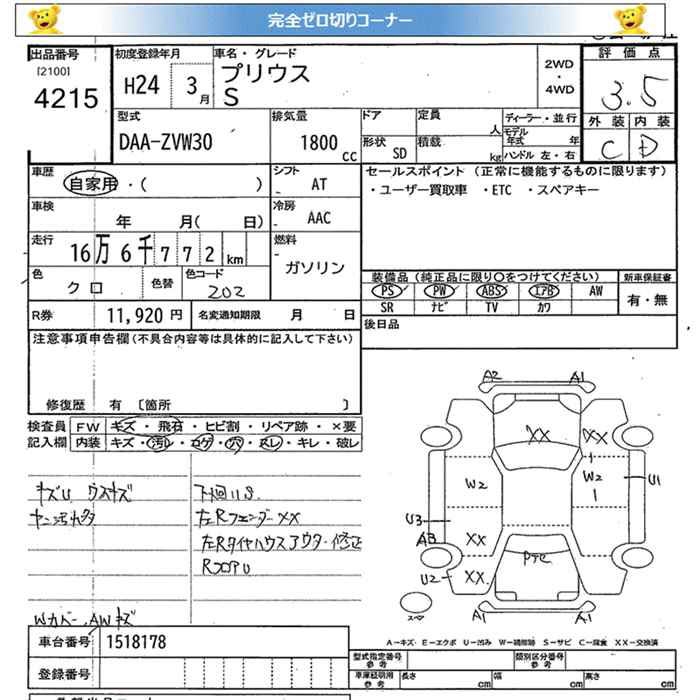 完全ゼロ切りコーナー
出品番号
[2100]
4215
初度登録年月
H24 3月
車名・グレード
プリウス
S
2WD
・
4WD
評価点
3.5
外装 内装
C D
型式
DAA-ZVW30
排気量
1800cc
ドア
定員 人
形状 SD
積載 kg
ディーラー・並行
モデル年式 年
ハンドル 左・右
車歴
自家用・( )
シフト
- AT
車検
年 月( 日)
冷房
- AAC
走行
16万6千772km
燃料
- ガソリン
色
クロ
色替
色コード
202
セールスポイント (正常に機能するものに限ります)
・ユーザー買取車 ・ETC ・スペアキー
装備品 (純正品に限り○をつけてください)
PS PW ABS エアB AW
SR ナビ TV カワ
新車保証書
有・無
R券 11,920円
名変通知期限 月 日
後日品
注意事項申告欄(不具合内容等は具体的に記入して下さい)
修復歴 有 〔箇所 〕
検査員記入欄
FW キズ・飛石・ヒビ割・リペア跡・×要
内装 キズ・汚レ・コゲ・穴・スレ・キレ・破レ
キズU ウスキズ
下回りS
左RフェンダーXX
左Rタイヤハウスアウター修正
RフロアU
Wカバー、AWキズ
A2 A1
XX XX
W2 W2 U1
U3
A3 XX
U2 XX
スペ
A1 A1
車台番号 1518178
登録番号
A-キズ・E-エクボ U-凹み W-補修跡 S-サビ C-腐食 XX-交換済
型式指定番号
参考
類別区分番号
参考
車庫証明用
参考
長さ cm 幅 cm 高さ cm